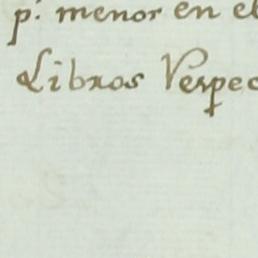 p.r menor en el
Libros Vespec